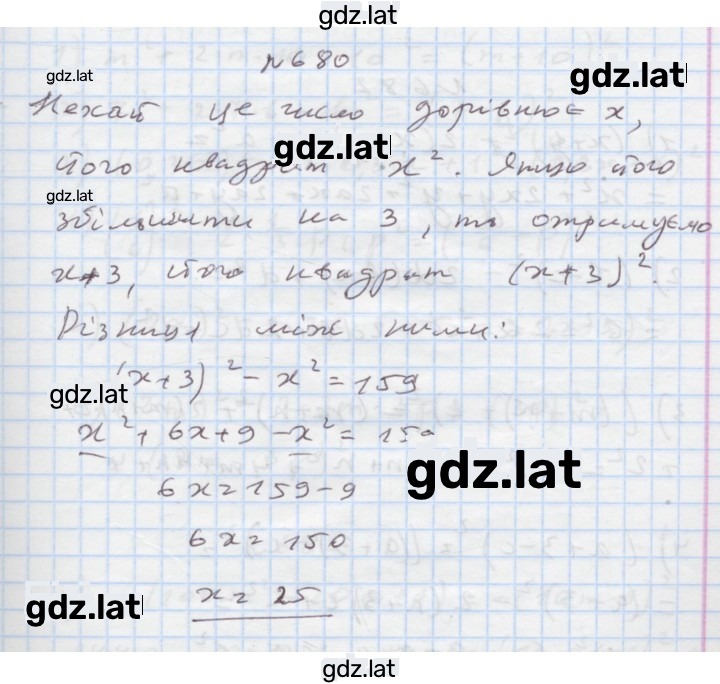 gdz.lat
№680
gdz.lat
gdz.lat
Нехай це число дорівнює x,
його квадрат x². Якщо його
gdz.lat
gdz.lat
збільшити на 3, то отримуємо
x+3, його квадрат (x+3)².
Різниця між ними:
(x+3)² - x² = 159
gdz.lat
x² + 6x + 9 - x² = 159
gdz.lat
6x = 159 - 9
6x = 150
x = 25
gdz.lat
gdz.lat